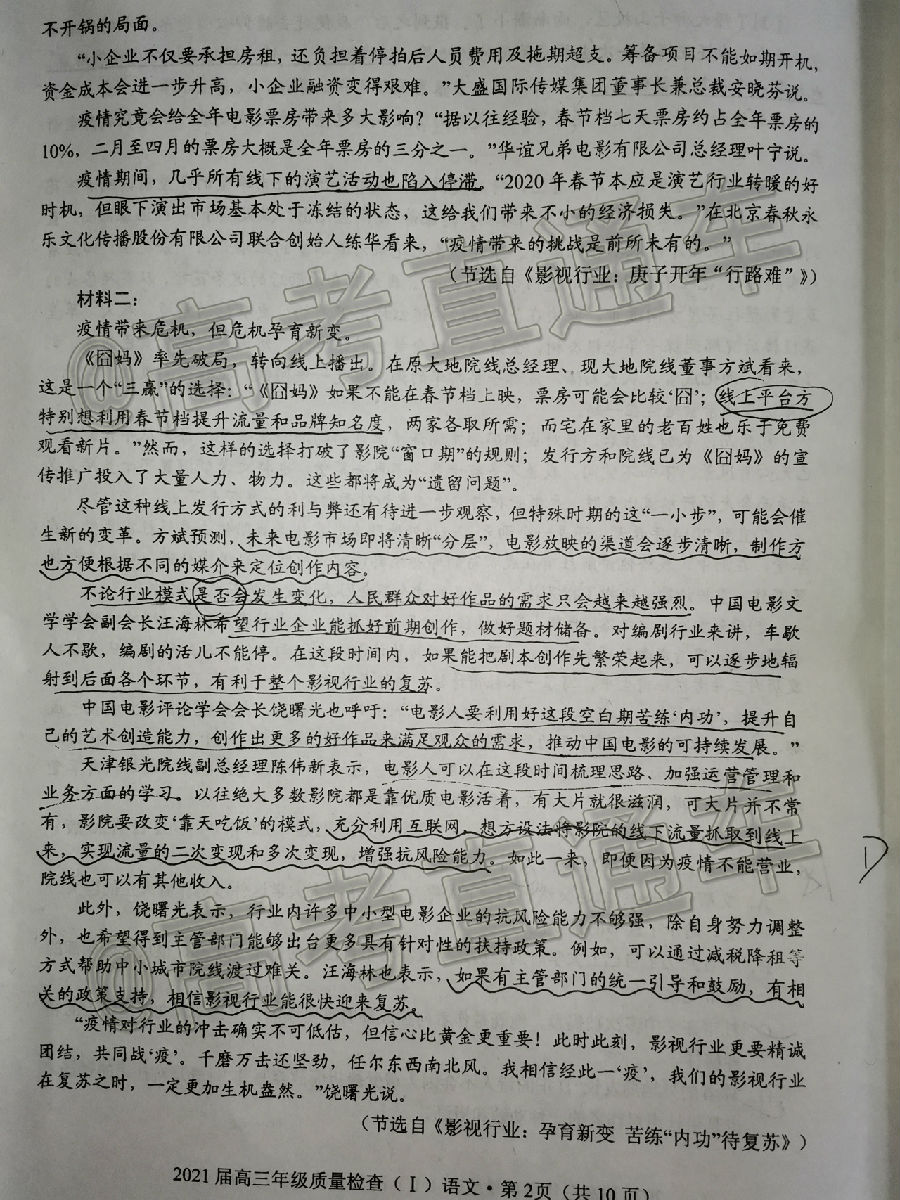 不开锅的局面。
“小企业不仅要承担房租，还负担着停拍后人员费用及拖期超支。筹备项目不能如期开机，
资金成本会进一步升高，小企业融资变得艰难。”大盛国际传媒集团董事长兼总裁安晓芬说。
疫情究竟会给全年电影票房带来多大影响？“据以往经验，春节档七天票房约占全年票房的
10%，二月至四月的票房大概是全年票房的三分之一。”华谊兄弟电影有限公司总经理叶宁说。
疫情期间，几乎所有线下的演艺活动也陷入停滞。“2020年春节本应是演艺行业转暖的好
时机，但眼下演出市场基本处于冻结的状态，这给我们带来不小的经济损失。”在北京春秋永
乐文化传播股份有限公司联合创始人练华看来，“疫情带来的挑战是前所未有的。”
（节选自《影视行业：庚子开年“行路难”》）
材料二：
疫情带来危机，但危机孕育新变。
《囧妈》率先破局，转向线上播出。在原大地院线总经理、现大地院线董事方斌看来，
这是一个“三赢”的选择：“《囧妈》如果不能在春节档上映，票房可能会比较‘囧’；线上平台方
特别想利用春节档提升流量和品牌知名度，两家各取所需；而宅在家里的老百姓也乐于免费
观看新片。”然而，这样的选择打破了影院“窗口期”的规则；发行方和院线已为《囧妈》的宣
传推广投入了大量人力、物力。这些都将成为“遗留问题”。
尽管这种线上发行方式的利与弊还有待进一步观察，但特殊时期的这“一小步”，可能会催
生新的变革。方斌预测，未来电影市场即将清晰“分层”，电影放映的渠道会逐步清晰，制作方
也方便根据不同的媒介来定位创作内容。
不论行业模式是否会发生变化，人民群众对好作品的需求只会越来越强烈。中国电影文
学学会副会长汪海林希望行业企业能抓好前期创作，做好题材储备。对编剧行业来讲，车歇
人不歇，编剧的活儿不能停。在这段时间内，如果能把剧本创作先繁荣起来，可以逐步地辐
射到后面各个环节，有利于整个影视行业的复苏。
中国电影评论学会会长饶曙光也呼吁：“电影人要利用好这段空白期苦练‘内功’，提升自
己的艺术创造能力，创作出更多的好作品来满足观众的需求，推动中国电影的可持续发展。”
天津银光院线副总经理陈伟新表示，电影人可以在这段时间梳理思路、加强运营管理和
业务方面的学习。以往绝大多数影院都是靠优质电影活着，有大片就很滋润，可大片并不常
有，影院要改变‘靠天吃饭’的模式，充分利用互联网，想方设法将影院的线下流量抓取到线上
来，实现流量的二次变现和多次变现，增强抗风险能力。如此一来，即使因为疫情不能营业，
院线也可以有其他收入。
D
此外，饶曙光表示，行业内许多中小型电影企业的抗风险能力不够强，除自身努力调整
外，也希望得到主管部门能够出台更多具有针对性的扶持政策。例如，可以通过减税降租等
方式帮助中小城市院线渡过难关。汪海林也表示，如果有主管部门的统一引导和鼓励，有相
关的政策支持，相信影视行业能很快迎来复苏。
“疫情对行业的冲击确实不可低估，但信心比黄金更重要！此时此刻，影视行业更要精诚
团结，共同战‘疫’。千磨万击还坚劲，任尔东西南北风。我相信经此一‘疫’，我们的影视行业
在复苏之时，一定更加生机盎然。”饶曙光说。
（节选自《影视行业：孕育新变 苦练“内功”待复苏》）
2021届高三年级质量检查（Ⅰ）语文·第2页（共10页）
@高考直通车
@高考直通车